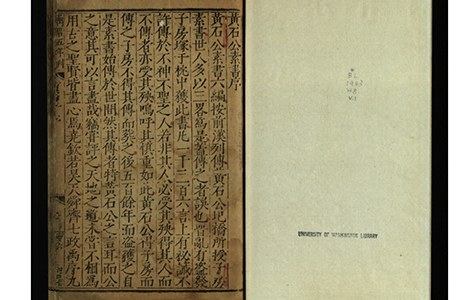 黃石公素書序
黃石公素書六編按前漢列傳黃石公圯橋所授子房
素書世人多以三畧為是葢傳之者誤也晉亂有盜發
子房塚于枕中獲此書凡一千三百六言上有秘誡不
許傳於不神不聖之人若非其人必受其殃得其人而
不傳者亦受其殃嗚呼其慎重如此黃石公得子房而
傳之子房不得其傳而葬之後五百餘年而盜獲之自
是素書始傳於世間然其傳者特黃石公之言耳而公
之意其可以言盡哉竊嘗評之天地之道未嘗不相為
用古之聖賢皆盡心焉堯欽若昊天舜齊七政禹序九
UNIVERSITY OF WASHINGTON LIBRARY